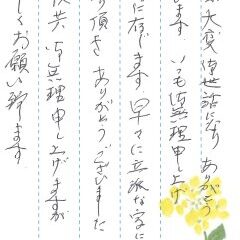 大変お世話になり ありがとう
ます。いつも御無理申し上げ
に存じます。早々に立派な字に
頂き ありがとうございました
共 御無理申し上げますが
しくお願い致します